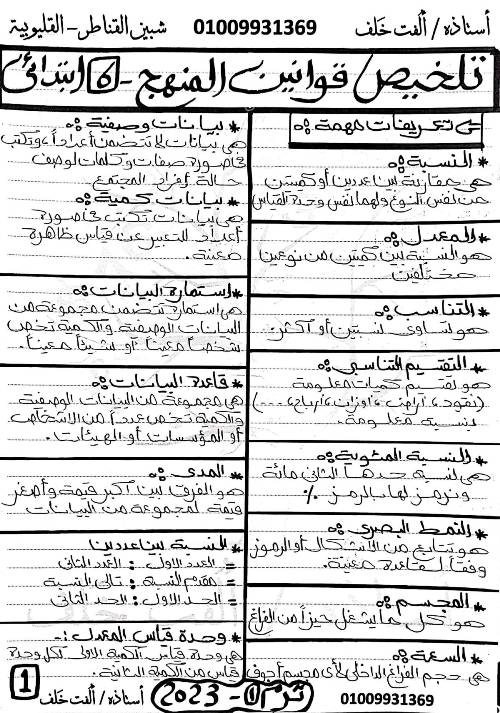 أستاذه/ ألفت خلف 01009931369 شبين القناطر-القليوبية
تلخيص قوانين المنهج - ٦ ابتدائى
تعريفات مهمة
* النسبة
هى مقارنة بين عددين أو كميتين
من نفس النوع ولهما نفس وحدة القياس
* المعدل
هو النسبة بين كميتين من نوعين
مختلفين
* التناسب
هو تساوى نسبتين أو أكثر.
* التقسيم التناسبى
هو تقسيم كميات معلومة
(نقود، أراضى، أوزان، أرباح، ....)
بنسبة معلومة.
* النسبة المئوية
هى نسبة حدها الثانى مائة
ونرمز لها بالرمز %
* النمط البصرى
هو تتابع من الأشكال أو الرموز
وفقاً لقاعدة معينة.
* المجسم
هو كل ما يشغل حيزاً من الفراغ
* السعة
هى حجم الفراغ الداخلى لأى مجسم أجوف
* بيانات وصفية
هى بيانات لا تتضمن أعداداً، وتكتب
فى صورة صفات وكلمات لوصف
حالة أفراد المجتمع
* بيانات كمية
هى بيانات تكتب فى صورة
أعداد للتعبير عن قياس ظاهرة
معينة.
* استمارة البيانات
هى استمارة تتضمن مجموعة من
البيانات الوصفية والكمية تخص
شخصاً معيناً أو شيئاً معيناً.
* قاعدة البيانات
هى مجموعة من البيانات الوصفية
والكمية تخص عدداً من الأشخاص
أو المؤسسات أو الهيئات.
* المدى
هو الفرق بين أكبر قيمة وأصغر
قيمة لمجموعة من البيانات
* النسبة بين عددين
= العدد الأول : العدد الثانى
= مقدم النسبة : تالى النسبة
= الحد الأول : الحد الثانى
* وحدة قياس المعدل :-
هى وحدة قياس الكمية الأولى لكل وحدة
قياس من الكمية الثانية.
01009931369 ترم ١ - 2023 أستاذه/ ألفت خلف 1